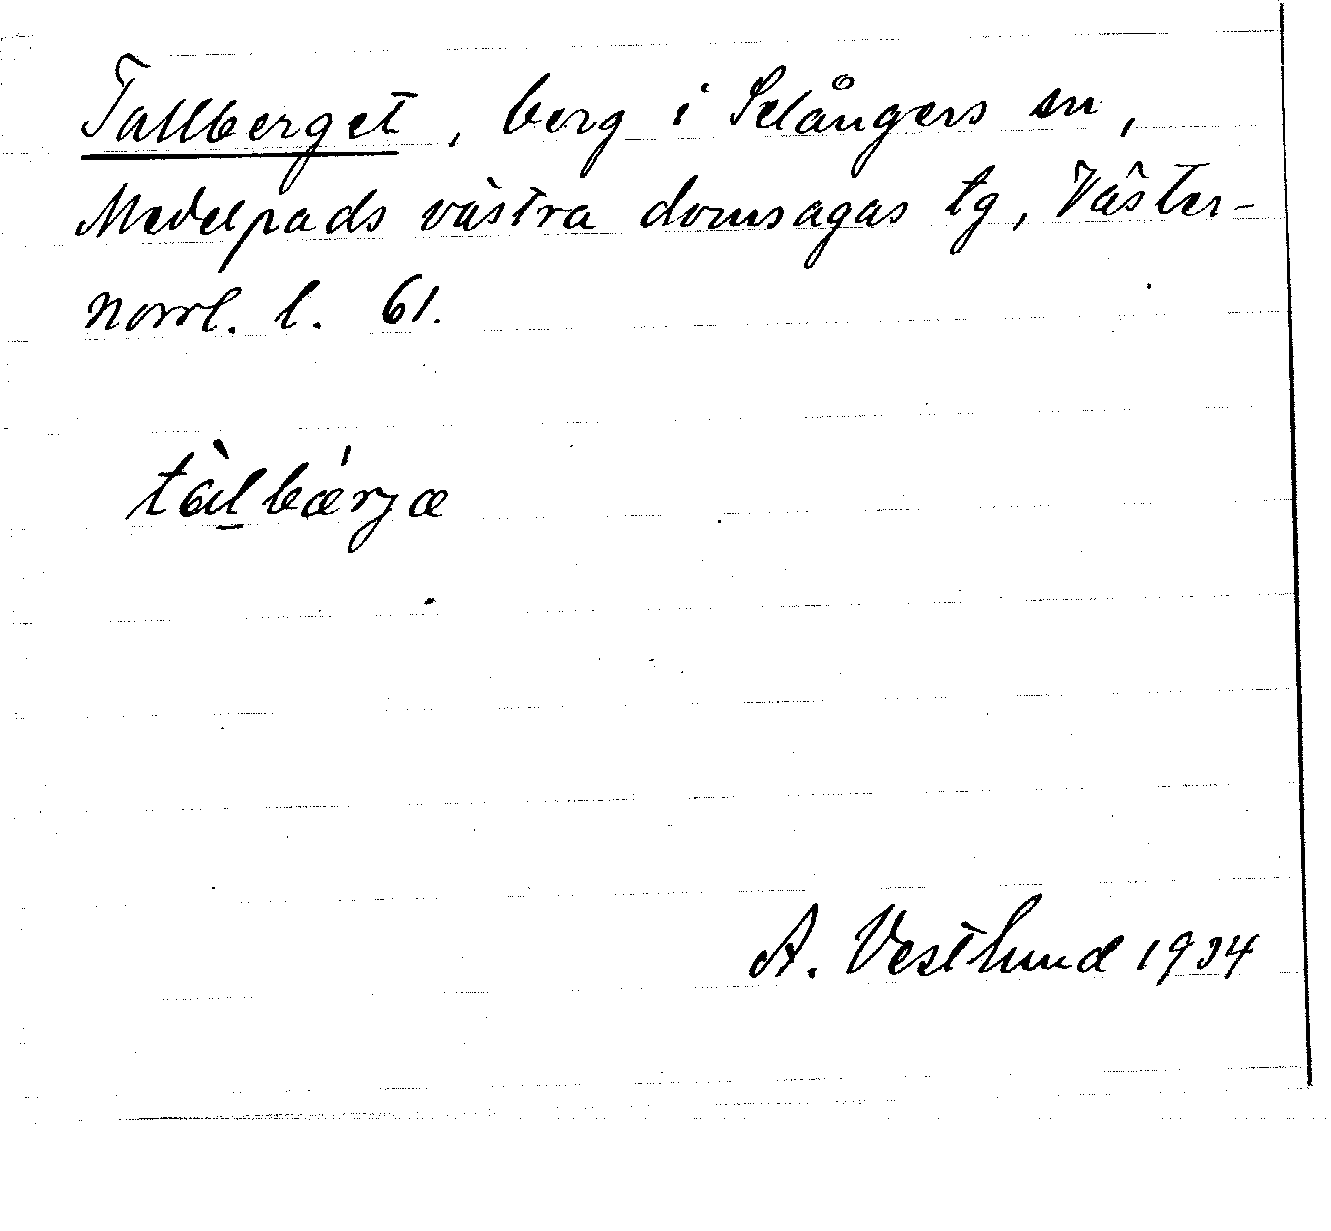 Tallberget, berg i Selångers sn,
Medelpads västra domsagas tg, Väster-
norrl. l. 61.
tàl̠bǽrjæ
A. Vestlund 1934